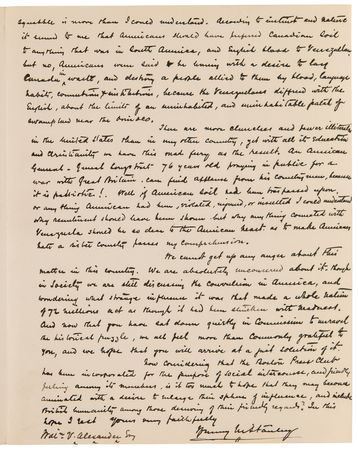 equitable is more than I could understand. According to instinct and nature
it seemed to me that Americans should have preferred Canadian soil
to anything that was in South America, and English blood to Venezuelan
but no, Americans were said to be burning with a desire to lay
Canada in waste, and destroy a people allied to them by blood, language
habits, commutinity & institutions, because the Venezuelans differed with the
English, about the limits of an uninhabited, and uninhabitable patch of
swampland near the Orinoco.
There are more churches and fewer illiterates
in the United States than in any other country, yet with all its Education
and Christianity we have this mad fury, as the result. An American
General - General Longstreet 76 years old praying in public for a
war with Great Britain - can find defence from his countrymen, because
he is patriotic!. Well if American soil had been trespassed upon,
or any thing American had been violated, injured, or insulted I could understand
why resentment should have been shown but why anything connected with
Venezuela should be so dear to the American heart as to make Americans
hate a sister country passes my comprehension.
We cannot get up any anger about this
matter in this country. We are absolutely unconcerned about it: though
in Society we are still discussing the convulsion in America, and
wondering what strange influence it was that made a whole nation
of 72 millions act as though it had been stricken with madness.
And now that you have sat down quietly in Commission to unravel
the historical puzzle, we all feel more than commonly grateful to
you, and we hope that you will arrive at a just solution of it.
Now considering that the Boston Press Club
has been incorporated for the purpose of social intercourse, and friendly
feeling among its members, is it too much to hope that they may become
animated with a desire to enlarge their sphere of influence, and include
British humanity among those deserving of their friendly regards? In this
hope I rest Yours very faithfully
Henry M Stanley
V. Alexander Esq